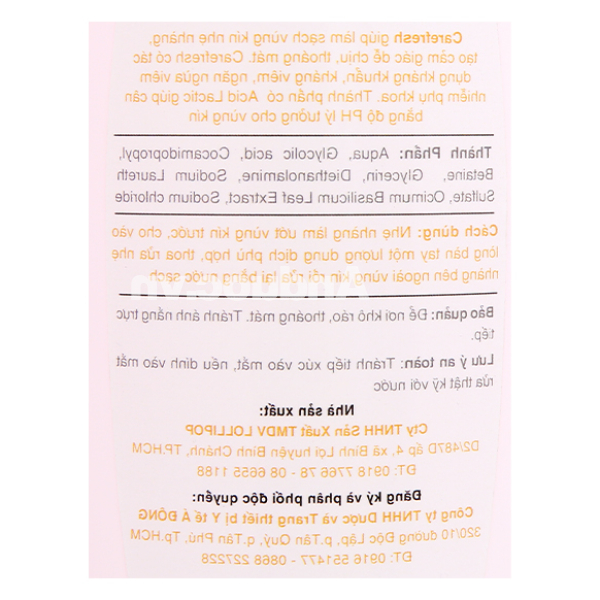 Carefresh giúp làm sạch vùng kín nhẹ nhàng,
tạo cảm giác dễ chịu, thoáng mát. Carefresh có tác
dụng kháng khuẩn, kháng viêm, ngăn ngừa viêm
nhiễm phụ khoa. Thành phần có Acid Lactic giúp cân
bằng độ PH lý tưởng cho vùng kín
Thành Phần: Aqua, Glycolic acid, Cocamidopropyl,
Betaine, Glycerin, Diethanolamine, Sodium Laureth
Sulfate, Ocimum Basilicum Leaf Extract, Sodium chloride
Cách dùng: Nhẹ nhàng làm ướt vùng kín trước, cho vào
lòng bàn tay một lượng dung dịch phù hợp, thoa rửa nhẹ
nhàng bên ngoài vùng kín rồi rửa lại bằng nước sạch
Anduoc.vn
Bảo quản: Để nơi khô ráo, thoáng mát. Tránh ánh nắng trực
tiếp.
Lưu ý an toàn: Tránh tiếp xúc vào mắt, nếu dính vào mắt
rửa thật kỹ với nước
Nhà sản xuất:
Cty TNHH Sản Xuất TMDV LOLLIPOP
D2/487D ấp 4, xã Bình Lợi huyện Bình Chánh, TP.HCM
ĐT: 0918 7766 78 - 08 6655 1188
Đăng ký và phân phối độc quyền:
Công ty TNHH Dược và Trang thiết bị Y tế Á ĐÔNG
320/10 đường Độc Lập, p.Tân Quý, q.Tân Phú, Tp.HCM
ĐT: 0916 551477 - 0868 227228